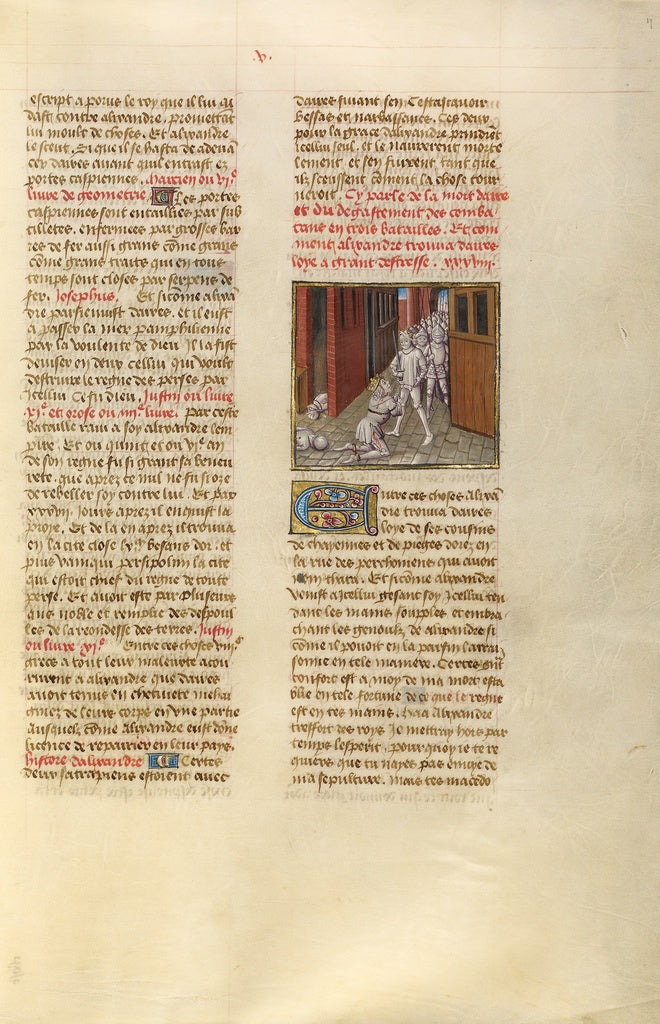 .v.
escript a porus le roy que il lui ai
dast contre alixandre, promettāt
lui moult de choses. Et alixandre
le sceut. Si que il se hasta de
daires auant quil entrast es
portes caspiennes. Marcien ou vi.e
liure de geometrie. Les portes
caspiennes sont entaillies par sub
tilletes, enfermees par grosses bar
res de fer aussi grans cōme grans
cōme grans traits qui en tous
temps sont closes par serpens de
fer. Josephus. Et sicōme alixā
dre parsieuuist daires, et il eust
a passer la mer pamphilienne
par la voulente de dieu Il la fist
deuiser en deux Celluy qui voult
destruire le regne des perses par
Icelluy Ce fu dieu. Justin ou liure
xi.e et orose ou iii.e liure. Par ceste
bataille raui a soy alixandre lem
pire. Et ou quint et ou vi.e an
de son regne fu si grant sa beneu
rete, que aprez ce nul ne fu si ose
de rebeller soy contre lui. Et par
Jours aprez il enquist la
proye. Et de la en aprez il trouua
en la cite close besans dor. et
puis vainqui persipolim la cite
qui estoit chief du regne de toute
perse. Et auoit este par pluseurs
ans noble et remplie des despoul
les de la reondesse des terres. Justin
ou liure xi.e Entre ces choses
grecs a tout leur
a alixandre que daires
auoit tenus en chetiuete mehai
gniez de leurs corps en vne partie
Ausquelz cōme Alixandre eust dōne
licence de repairier en leur pays.
histore dalixandre Certes
deux satrapiens estoient auec
daires suiant sen Cestassauoir
bessas et narbassanes. Ces deux
pour la grace dalixandre prindrēt
Icellui seul, et le naurerent morte
lement, et sen fuirent, tant que
ilz sceussent cōment la chose tour
neroit. Cy parle de la mort daire
et du degastement des comba
tans en trois batailles. Et com
ment alixandre trouua daires
loye a grant destresse. xxxviii.
Entre ces choses alixā
dre trouua daires
loye de ses cousins
de chayennes et de pieges dorez en
la rue des perchomens qui auoit
nom thara. Et sicōme alixandre
venist a Icellui gesant soy Icellui ten
dant les mains souples et embra
chant les genoulz de alixandre si
cōme il pouoit en la parfin larrai
sonne en tele maniere. Certes grāt
confort est a moy de ma mort esta
blie en tele fortune de ce que le regne
est en tes mains. Haa Alixandre
tresfort des roys Je mettray hors par
temps lesperit, pour quoy ie te re
quiers que tu nayes pas enuye de
ma sepulture. mais tes macedo